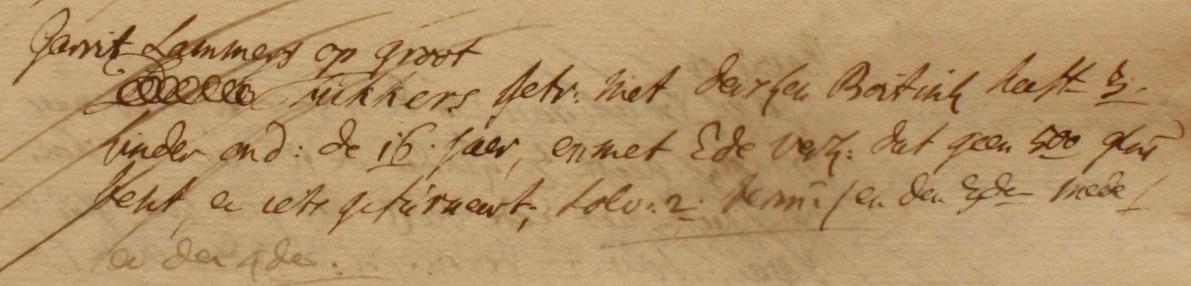 Gerrit Lammers op groot
rikkers getr: met Boitink heeft 3.
kinder ond: de 16. jaer, en met Ede verk: dat geen 500 glns
heft, en iets gefurneert, solv: 2. term: en den 3den mede
en den 4de.